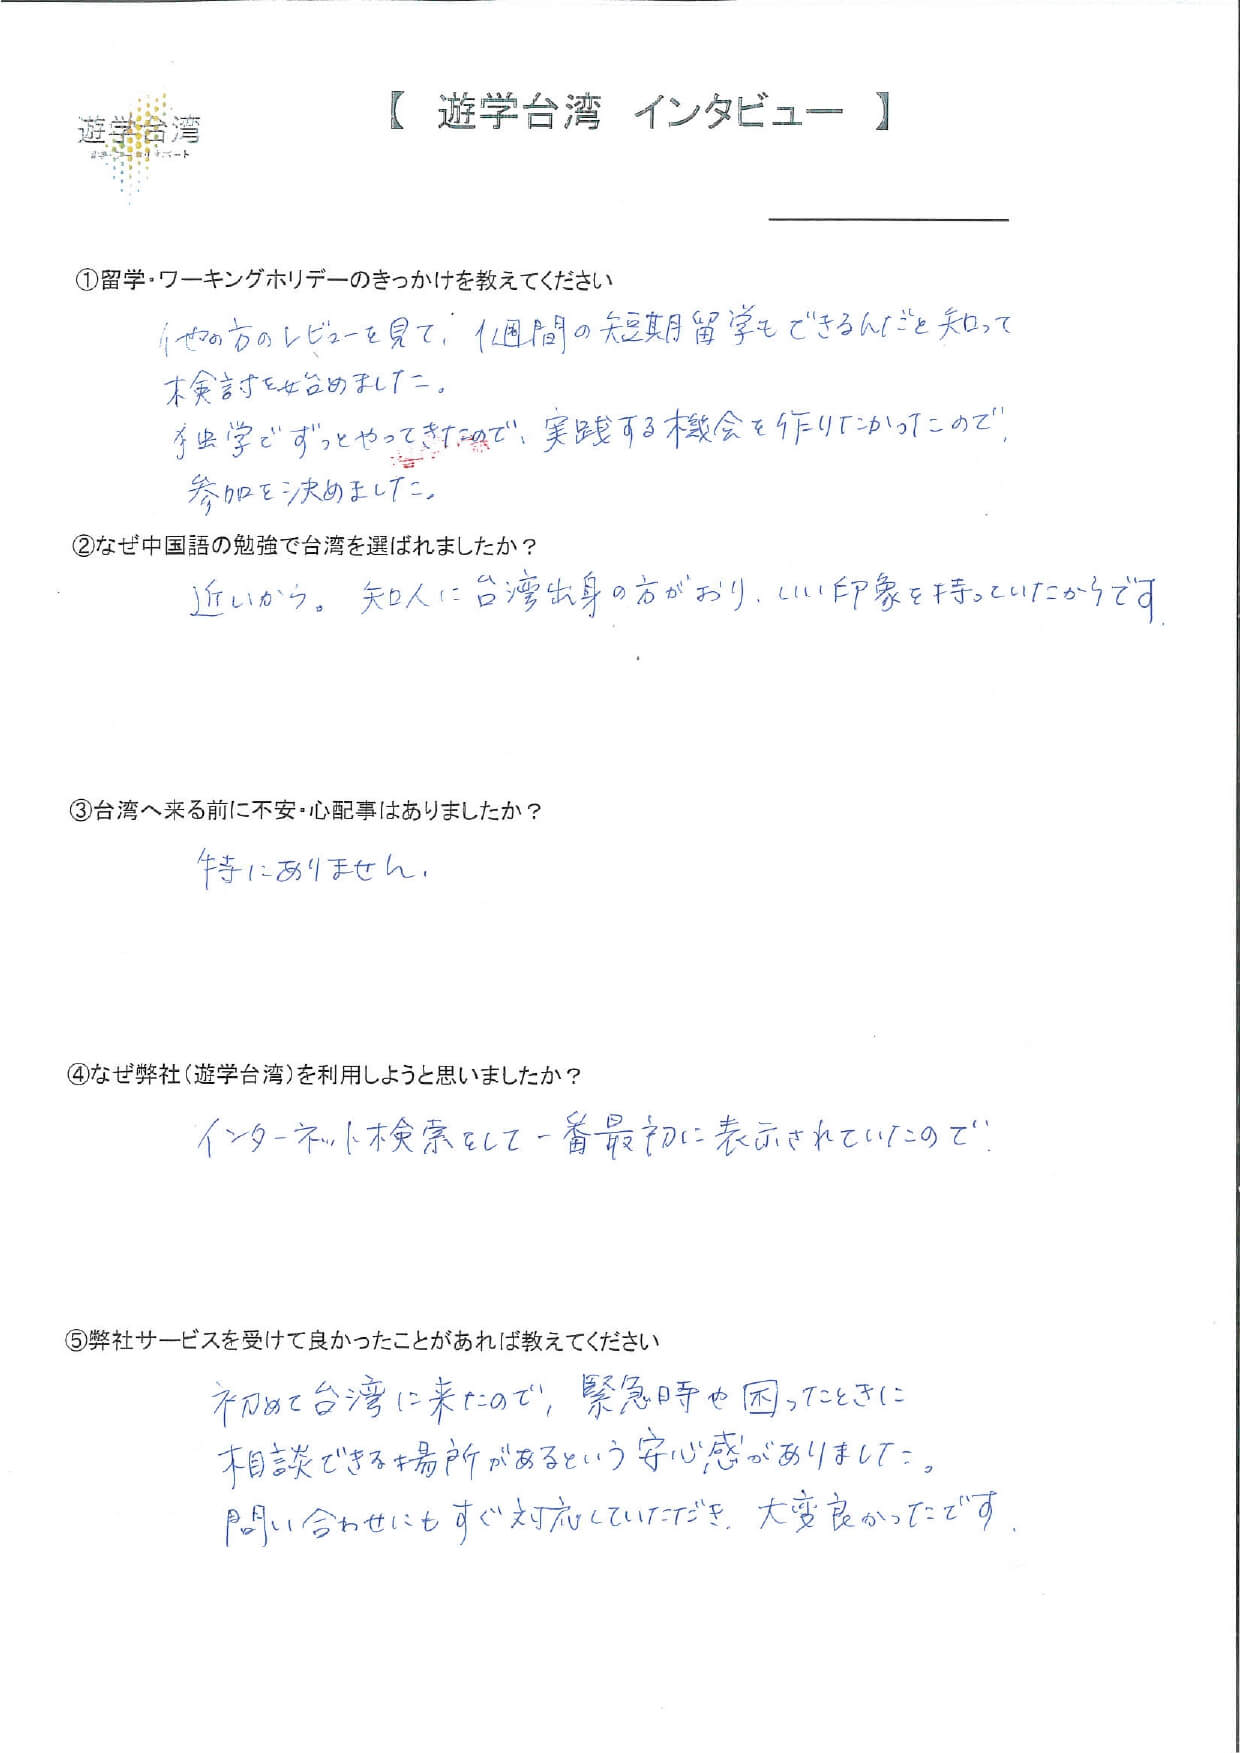 【 遊学台湾 インタビュー 】
遊学台湾
①留学・ワーキングホリデーのきっかけを教えてください
他の方のレビューを見て、1週間の短期留学もできるんだと知って
検討を始めました。
独学でずっとやってきたので、実践する機会を作りたかったので、
参加を決めました。
②なぜ中国語の勉強で台湾を選ばれましたか？
近いから。知人に台湾出身の方がおり、いい印象を持っていたからです。
③台湾へ来る前に不安・心配事はありましたか？
特にありません。
④なぜ弊社（遊学台湾）を利用しようと思いましたか？
インターネット検索をして一番最初に表示されていたので。
⑤弊社サービスを受けて良かったことがあれば教えてください
初めて台湾に来たので、緊急時や困ったときに
相談できる場所があるという安心感がありました。
問い合わせにもすぐ対応していただき、大変良かったです。